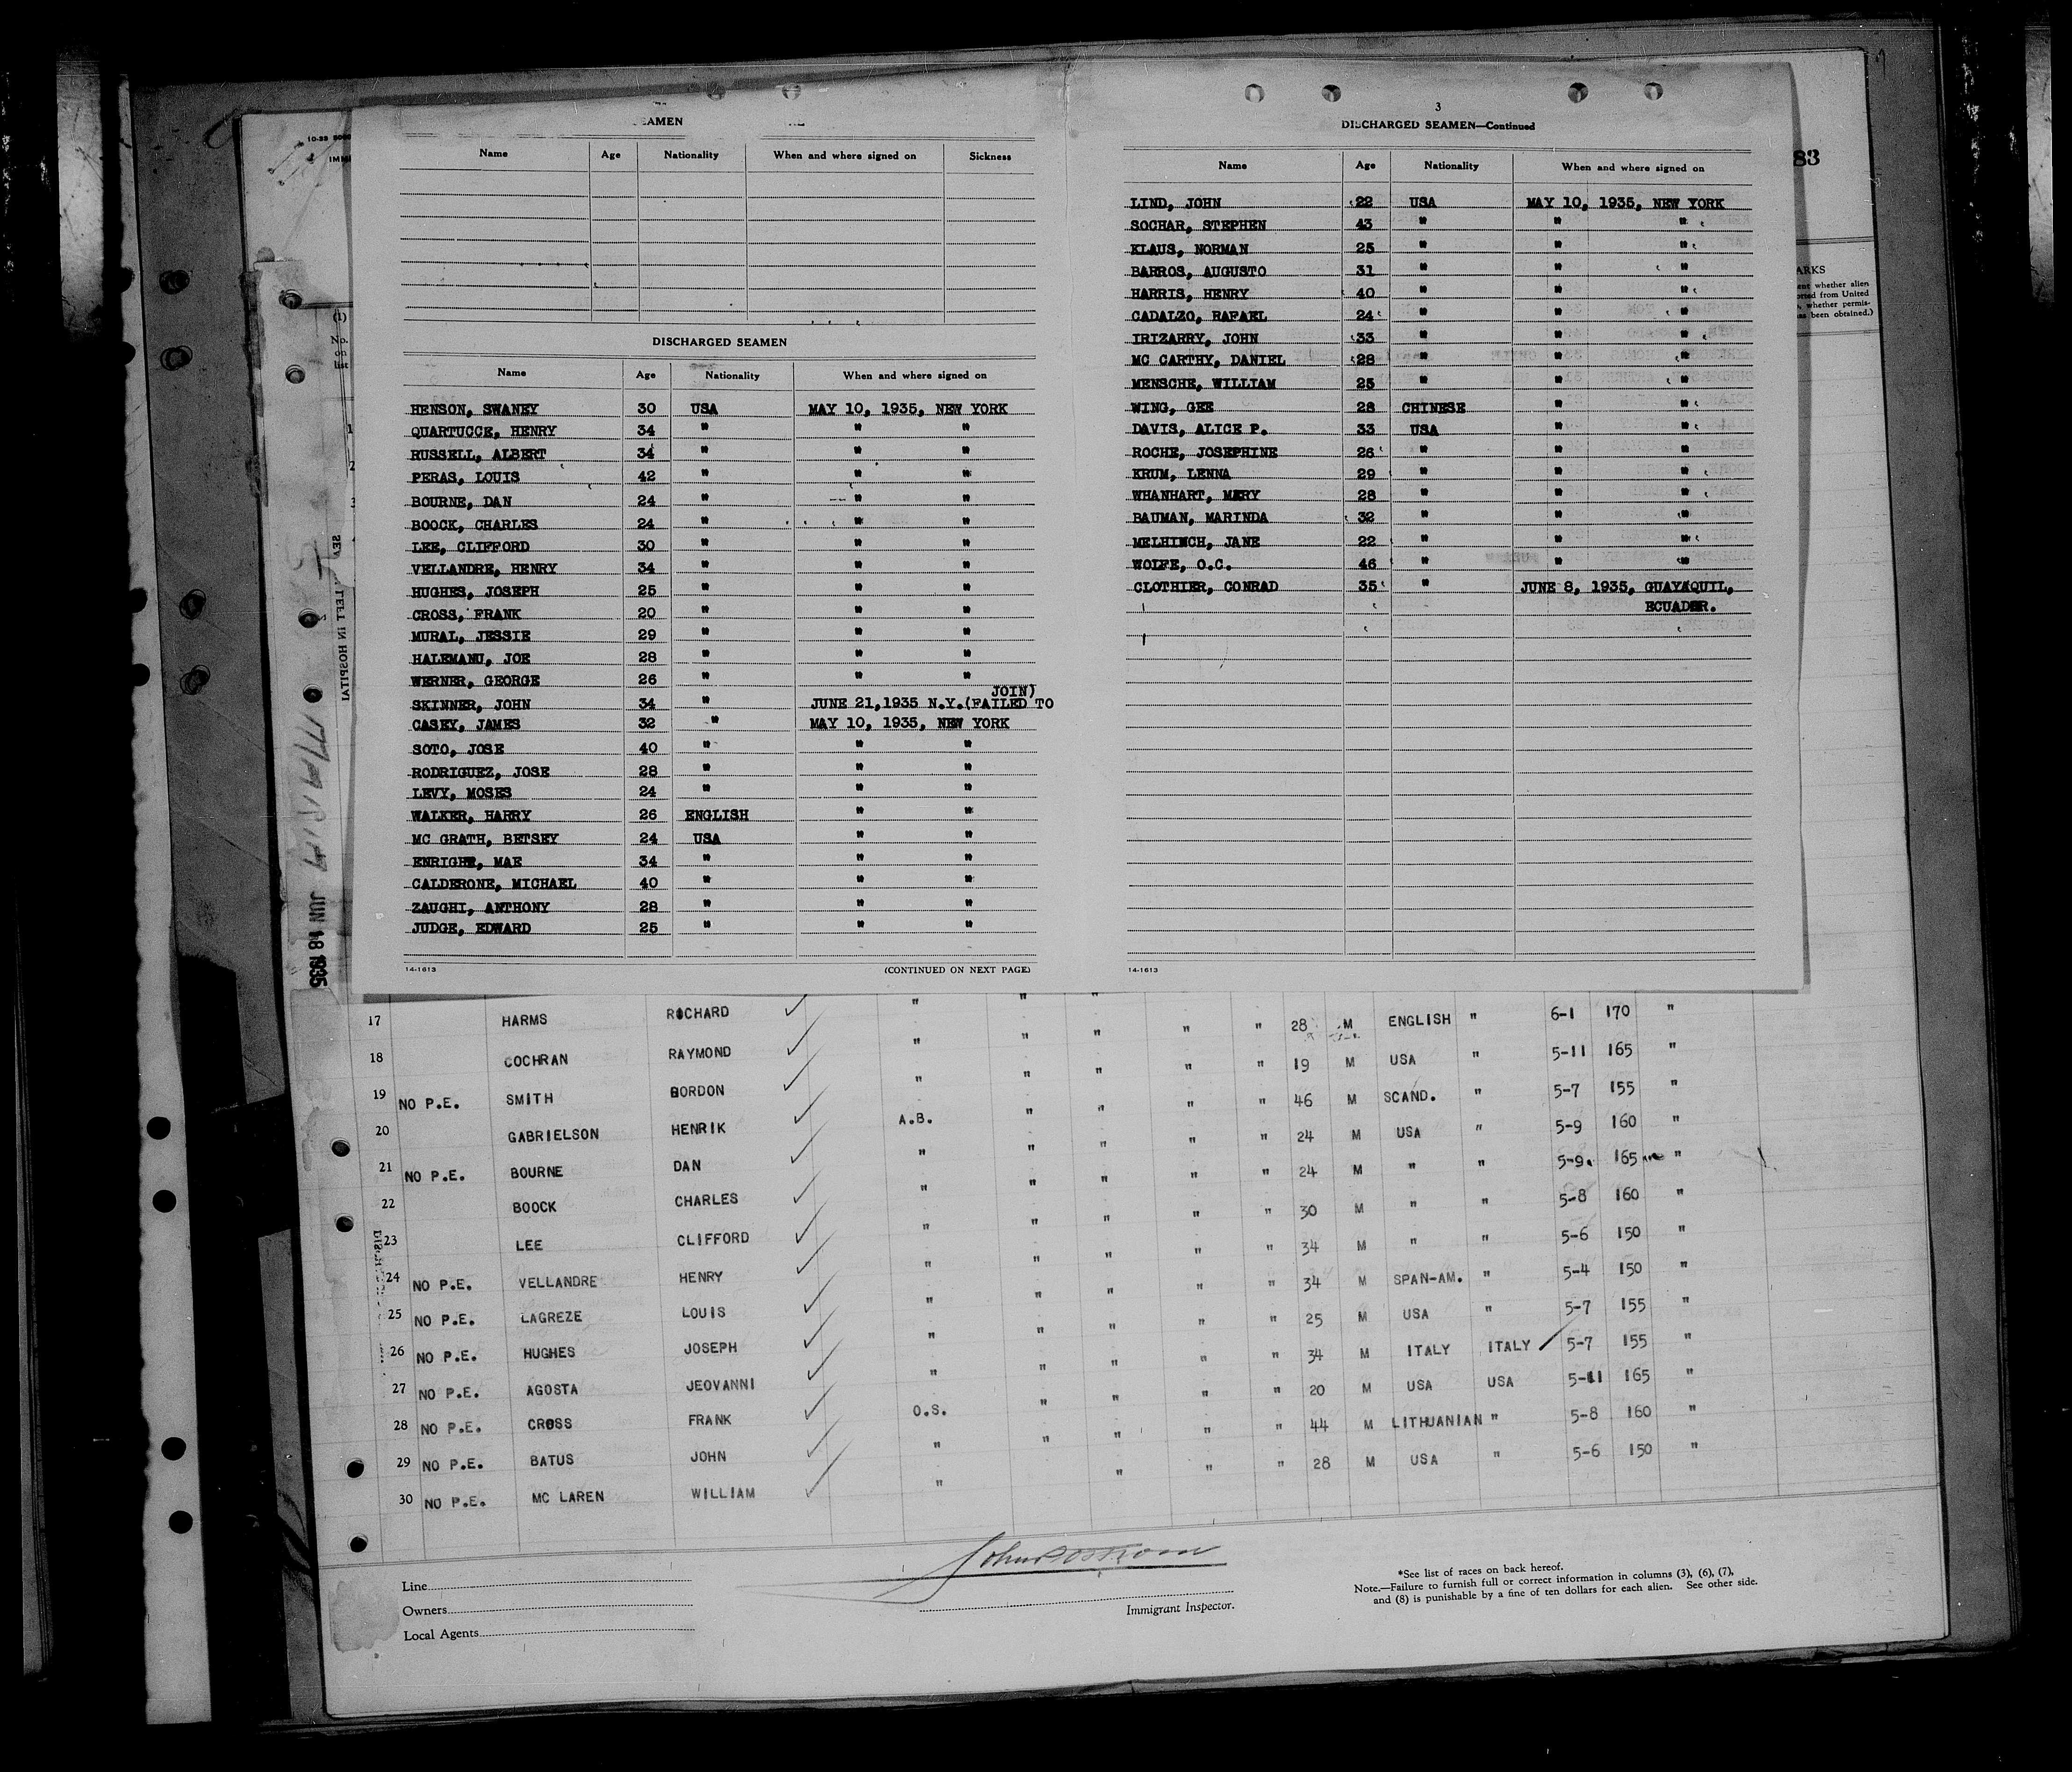 10-23
IMMI
(1)
list
SEAMEN
Name Age Nationality When and where signed on Sickness
DISCHARGED SEAMEN
Name Age Nationality When and where signed on
HENSON, SWANEY 30 USA MAY 10, 1935, NEW YORK
QUARTUCCE, HENRY 34 " " "
RUSSELL, ALBERT 34 " " "
PERAS, LOUIS 42 " " "
BOURNE, DAN 24 " --" "
BOOCK, CHARLES 24 " " "
LEE, CLIFFORD 30 " " "
VELLANDRE, HENRY 34 " " "
HUGHES, JOSEPH 25 " " "
CROSS, FRANK 20 " " "
MURAL, JESSIE 29 " " "
HALEMANU, JOE 28 " " "
WERNER, GEORGE 26 " " "
JOIN)
SKINNER, JOHN 34 " JUNE 21,1935 N.Y.(FAILED TO
CASEY, JAMES 32 " MAY 10, 1935, NEW YORK
SOTO, JOSE 40 " " "
RODRIGUEZ, JOSE 28 " " "
LEVY, MOSES 24 " " "
WALKER, HARRY 26 ENGLISH " "
MC GRATH, BETSEY 24 USA " "
ENRIGHT, MAE 34 " " "
CALDERONE, MICHAEL 40 " " "
ZAUGHI, ANTHONY 28 " " "
JUDGE, EDWARD 25 " " "
14-1613 (CONTINUED ON NEXT PAGE)
3
DISCHARGED SEAMEN—Continued
Name Age Nationality When and where signed on
LIND, JOHN 22 USA MAY 10, 1935, NEW YORK
SOCHAR, STEPHEN 43 " " "
KLAUS, NORMAN 25 " " "
BARROS, AUGUSTO 31 " " "
HARRIS, HENRY 40 " " "
CADALZO, RAFAEL 24 " " "
IRIZARRY, JOHN 33 " " "
MC CARTHY, DANIEL 28 " " "
MENSCHE, WILLIAM 25 " " "
WING, GEE 28 CHINESE " "
DAVIS, ALICE P. 33 USA " "
ROCHE, JOSEPHINE 26 " " "
KRUM, LENNA 29 " " "
WHANHART, MARY 28 " " "
BAUMAN, MARINDA 32 " " "
MELHINCH, JANE 22 " " "
WOLFE, O.C. 46 " " "
CLOTHIER, CONRAD 35 " JUNE 8, 1935, GUAYAQUIL,
ECUADOR.
14-1613
83
ARKS
ent whether alien
orted from United
, whether permis-
as been obtained.)
LEFT IN HOSPITAL
JUN 18 1935
17 HARMS ROCHARD " " " 28 M ENGLISH " 6-1 170 "
18 COCHRAN RAYMOND " " " " " 19 M USA " 5-11 165 "
19 NO P.E. SMITH GORDON " " " " " 46 M SCAND. " 5-7 155 "
20 GABRIELSON HENRIK A.B. " " " " 24 M USA " 5-9 160 "
21 NO P.E. BOURNE DAN " " " " " 24 M " " 5-9 165 "
22 BOOCK CHARLES " " " " " 30 M " " 5-8 160 "
23 LEE CLIFFORD " " " " " 34 M " " 5-6 150 "
24 NO P.E. VELLANDRE HENRY " " " " " 34 M SPAN-AM. " 5-4 150 "
25 NO P.E. LAGREZE LOUIS " " " " " 25 M USA " 5-7 155 "
26 NO P.E. HUGHES JOSEPH " " " " " 34 M ITALY ITALY 5-7 155 "
27 NO P.E. AGOSTA JEOVANNI " " " " " 20 M USA USA 5-11 165 "
28 NO P.E. CROSS FRANK O.S. " " " " 44 M LITHUANIAN " 5-8 160 "
29 NO P.E. BATUS JOHN " " " " " 28 M USA " 5-6 150 "
30 NO P.E. MC LAREN WILLIAM "
Line
Owners
Local Agents
Immigrant Inspector.
*See list of races on back hereof.
Note.—Failure to furnish full or correct information in columns (3), (6), (7),
and (8) is punishable by a fine of ten dollars for each alien. See other side.